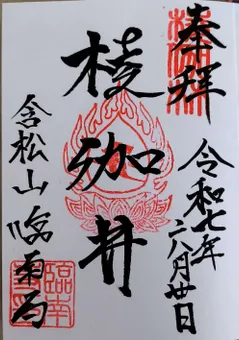 奉拝
令和七年
八月廿日
楞伽井
含松山 臨南寺
臨南